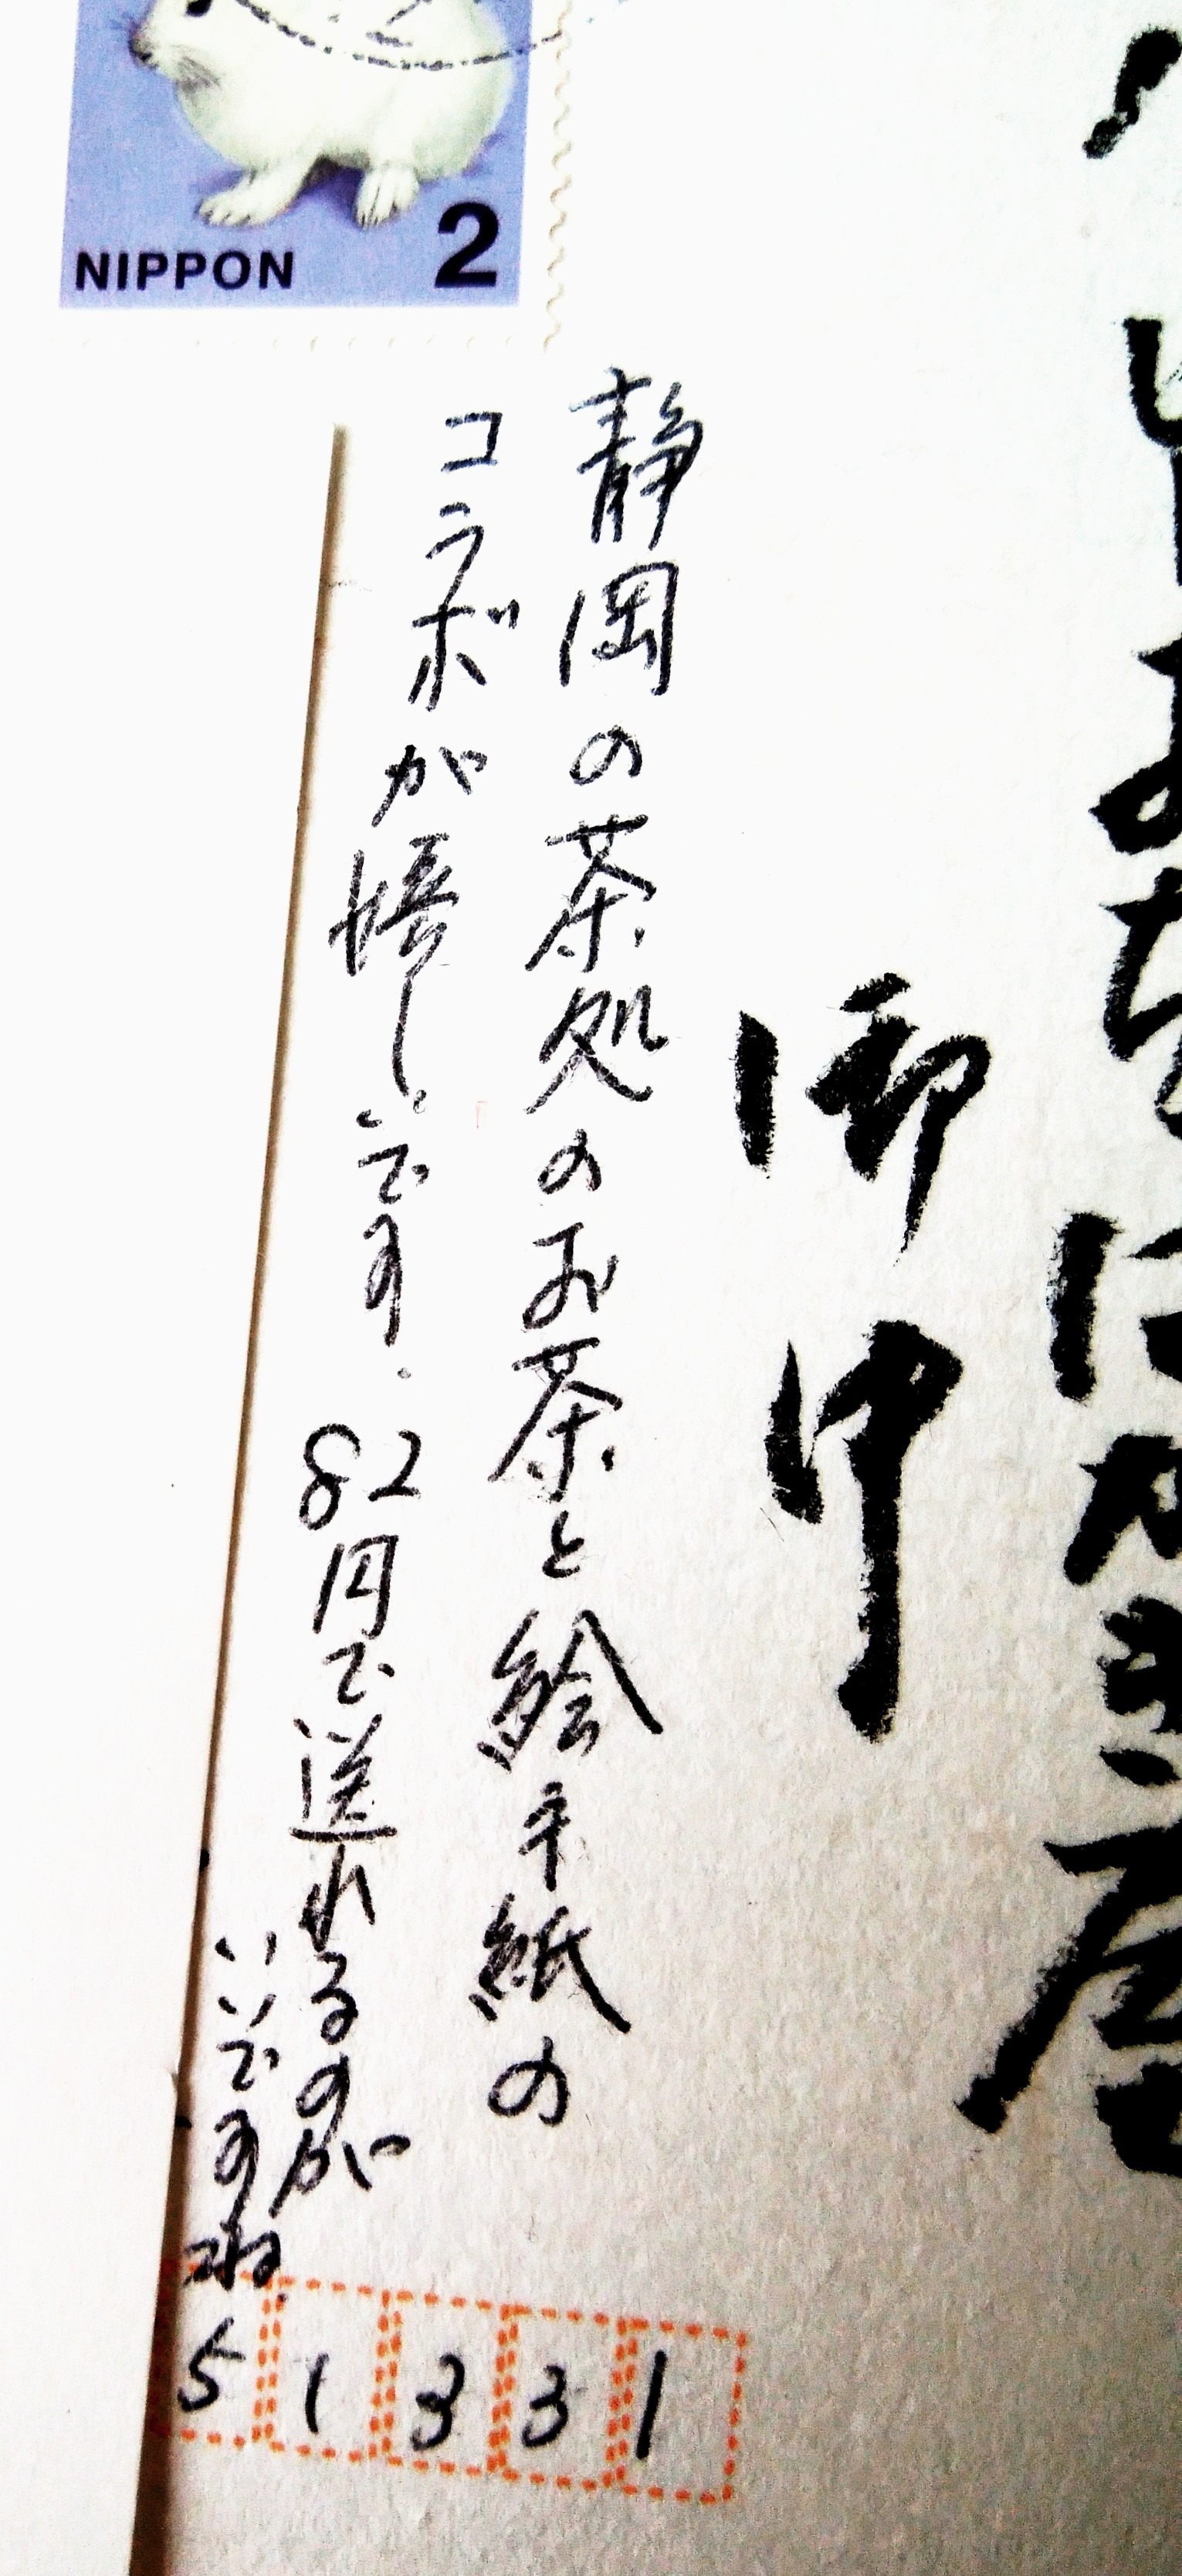 NIPPON 2
はがき屋
御中
静岡の茶処のお茶と絵手紙の
コラボが嬉しいです.82円で送れるのが
いいですね
51331